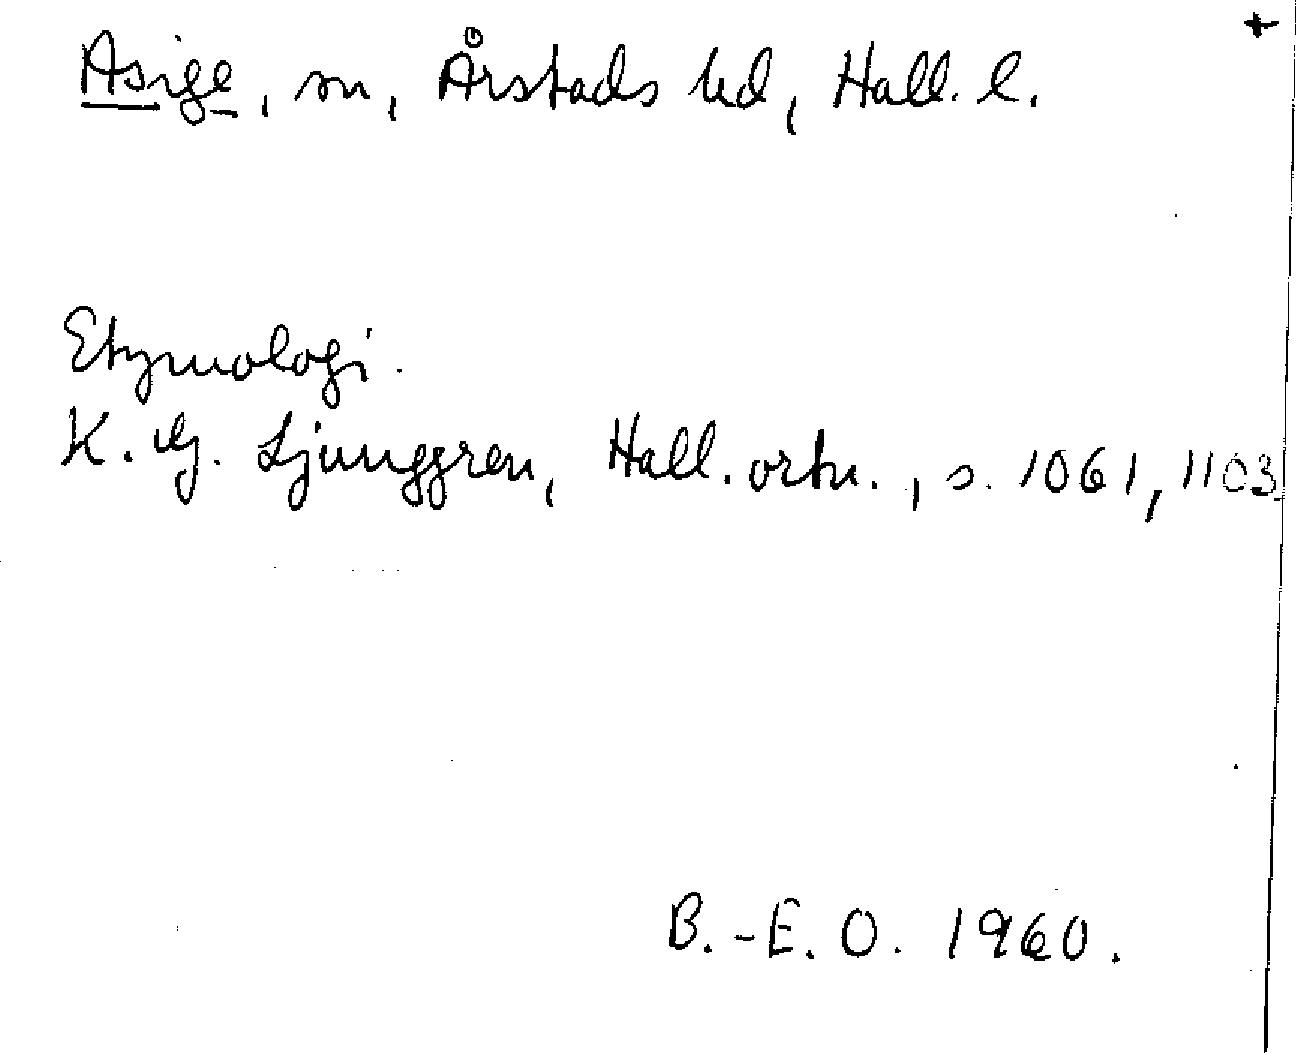 +
Asige, sn, Årstads hd, Hall. l.
Etymologi.
K. G. Ljunggren, Hall. ortn., s. 1061, 1103
B.-E. O. 1960.